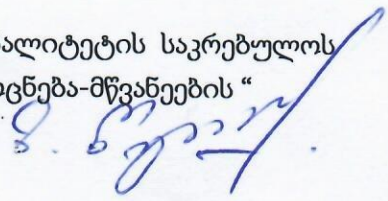 ალიტეტის საკრებულოს
ოცნება-მწვანეების“